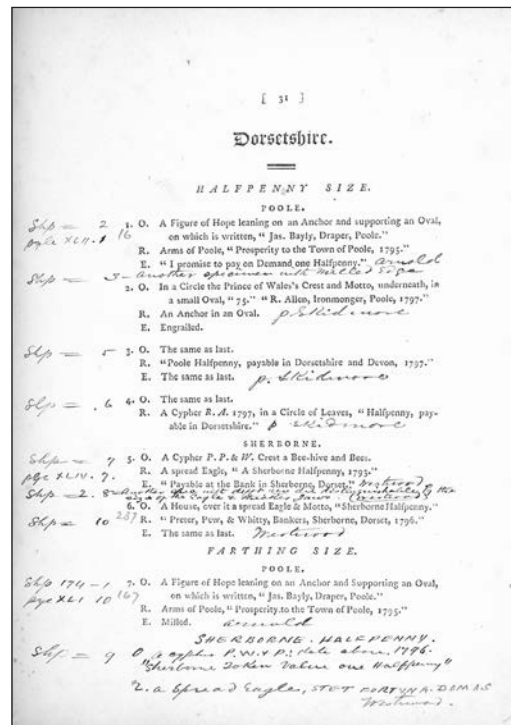 [ 31 ]
Dorsetshire.
HALFPENNY SIZE.
POOLE.
Shp = 2 1. O. A Figure of Hope leaning on an Anchor and supporting an Oval,
16 on which is written, "Jas. Bayly, Draper, Poole."
R. Arms of Poole, "Prosperity to the Town of Poole, 1795."
E. "I promise to pay on Demand one Halfpenny." Arnold
Shp = 3 - Another specimen with Milled Edge
2. O. In a Circle the Prince of Wales's Crest and Motto, underneath, in
a small Oval, "75." "R. Allen, Ironmonger, Poole, 1797."
R. An Anchor in an Oval. P Skidmore
E. Engrailed.
Shp = 5 3. O. The same as last.
R. "Poole Halfpenny, payable in Dorsetshire and Devon, 1797."
E. The same as last. P. Skidmore
Shp = 6 4. O. The same as last.
R. A Cypher R. A. 1797, in a Circle of Leaves, "Halfpenny, pay-
able in Dorsetshire." P Skidmore
SHERBORNE.
Shp = 7 5. O. A Cypher P. P. & W. Crest a Bee-hive and Bees.
R. A spread Eagle, "A Sherborne Halfpenny, 1793."
E. "Payable at the Bank in Sherborne, Dorset." Westwood
Shp = 8 - Another with
of the Eagle & (Westwood)
6. O. A House, over it a spread Eagle & Motto, "Sherborne Halfpenny."
Shp = 10 287 R. "Preter, Pew, & Whitty, Bankers, Sherborne, Dorset, 1796."
E. The same as last. Westwood
FARTHING SIZE.
POOLE.
Shp 174 - 1 7. O. A Figure of Hope leaning on an Anchor and Supporting an Oval,
10 167 on which is written, "Jas. Bayly, Draper, Poole."
R. Arms of Poole, "Prosperity to the Town of Poole, 1795."
E. Milled. Arnold
SHERBORNE. HALFPENNY.
Shp = 9 O a cypher P.W.&P.; date above, 1796.
"Sherborne Token Value one Halfpenny"
R. a Spread Eagle, STET FORTUNA DOMUS
Westwood.